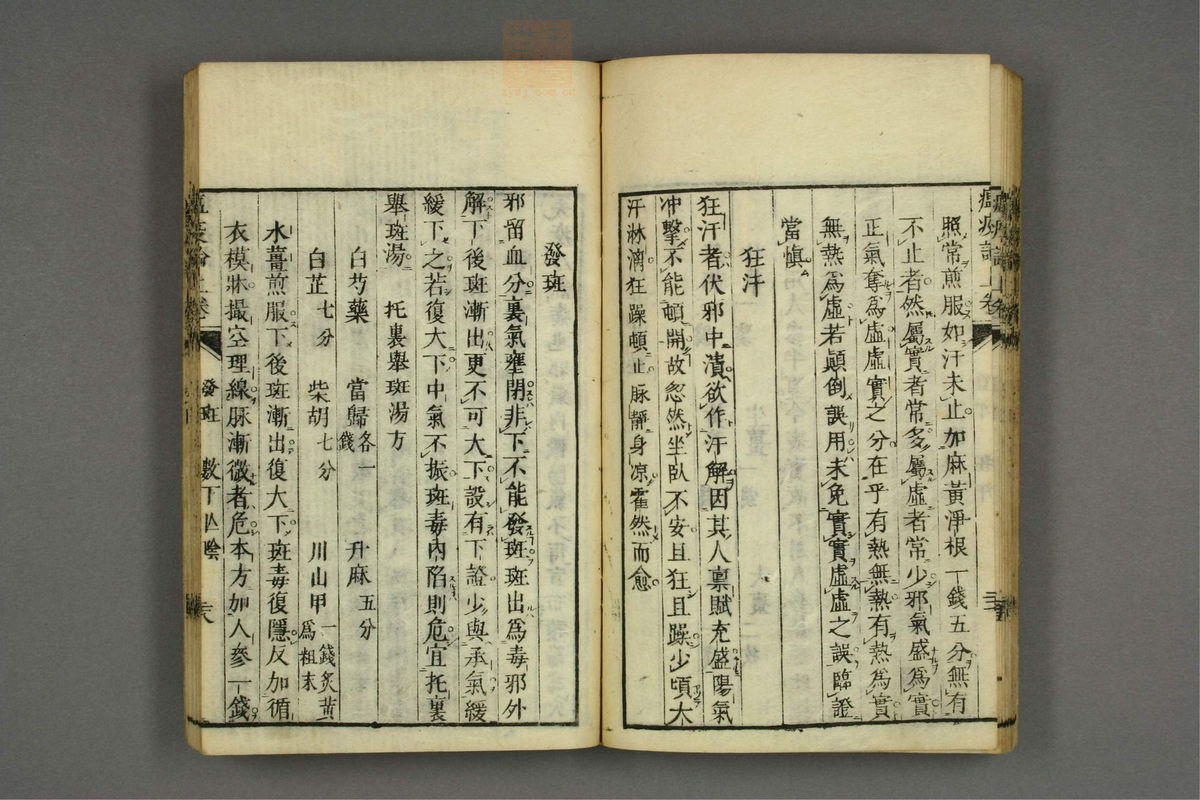 照常煎服如汗未止加麻黃淨根一錢五分無有
不止者然屬實者常多屬虛者常少邪氣盛爲實
正氣奪爲虛虛實之分在乎有熱無熱有熱爲實
無熱爲虛若顚倒誤用未免實實虛虛之誤臨證
當慎
狂汗
狂汗者伏邪中潰欲作汗解因其人禀賦充盛陽氣
冲擊不能頓開故忽然坐臥不安且狂且躁少頃大
汗淋漓狂躁頓止脉靜身凉霍然而愈
發斑
邪留血分裏氣壅閉非下不能發斑斑出爲毒邪外
解下後斑漸出更不可大下設有下證少與承氣緩
緩下之若復大下中氣不振斑毒內陷則危宜托裏
舉斑湯
托裏舉斑湯方
白芍藥 當歸各一錢 升麻五分
白芷七分 柴胡七分 川山甲二錢炙黃爲粗末
水薑煎服下後斑漸出復大下斑毒復隱反加循
衣模牀撮空理線脉漸微者危本方加人參一錢
發斑 數下亡陰